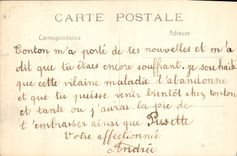 CARTE POSTALE
Correspondance
Adresse
Tonton m'a porté de tes nouvelles et m'a
dit que tu étais encore souffrant. je souhaite
que cette vilaine maladie t'abandonne
et que tu puisse venir bientôt chez tonton
et tante où j'aurai la joie de
t'embrasser ainsi que Pusette
Votre affectionnée
Andrée